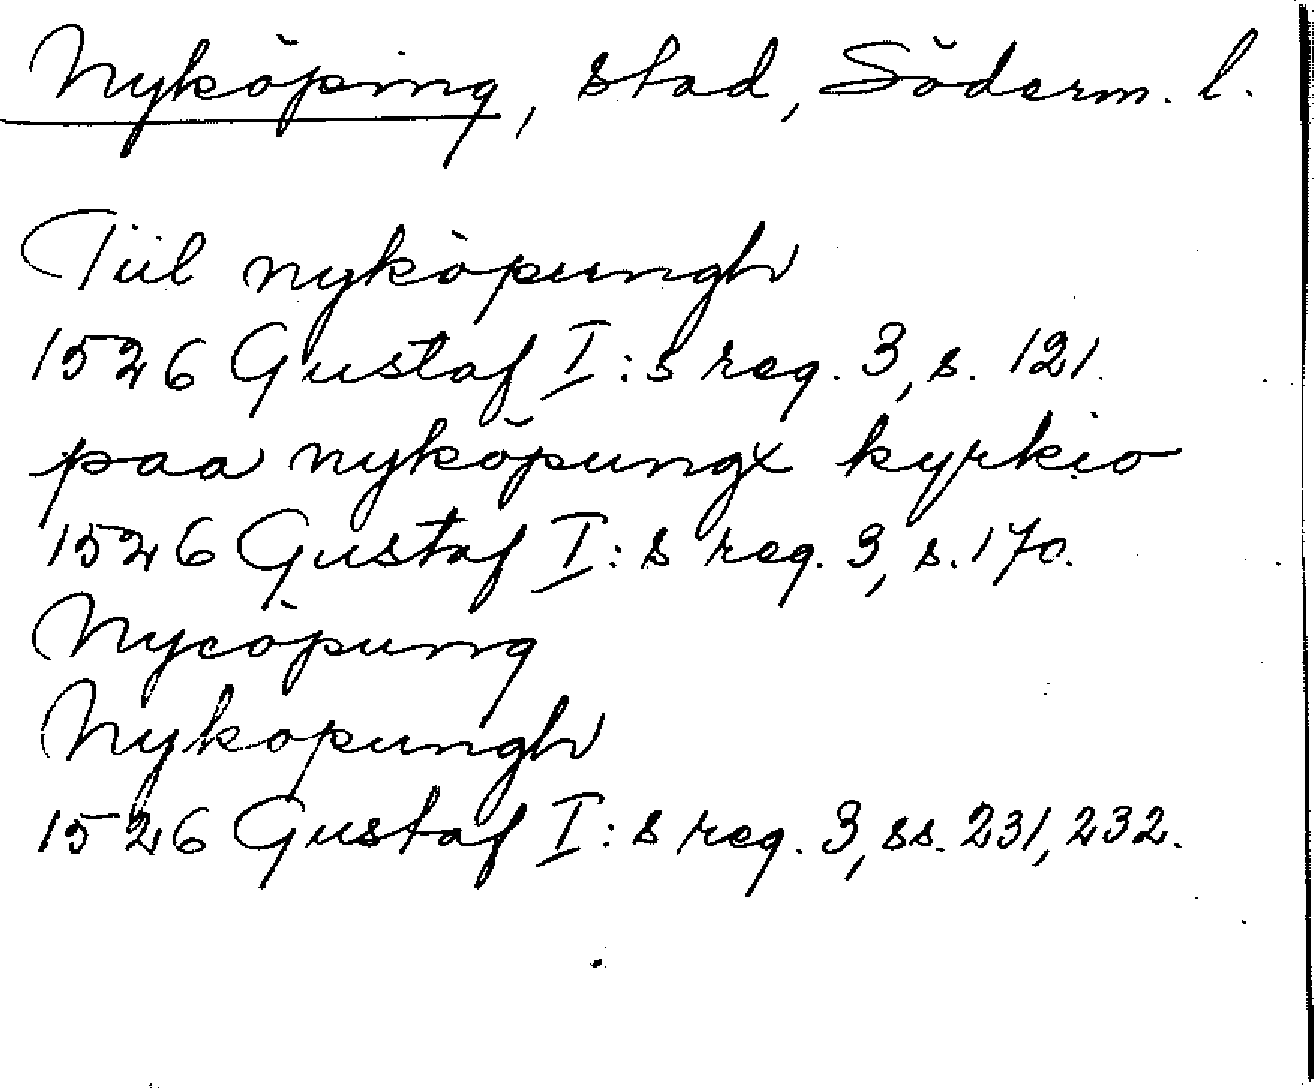 Nyköping, stad, Söderm. l.
Tiil nyköpungh
1526 Gustaf I:s reg. 3, s. 121.
paa nyköpungx kyrkio
1526 Gustaf I:s reg. 3, s. 170.
Nycöpung
Nykopungh
1526 Gustaf I:s reg. 3, ss. 231, 232.